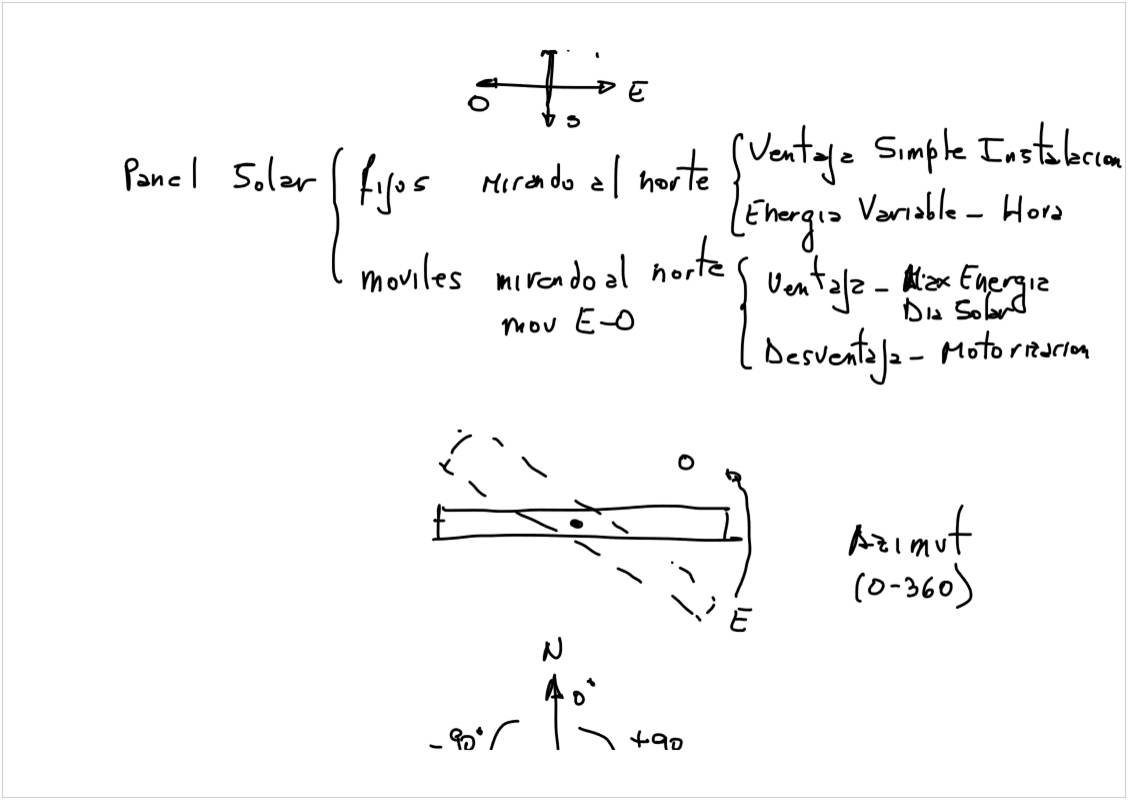 O E
S
Panel Solar fijos Mirando al norte Ventaja Simple Instalacion
Energia Variable - Hora
moviles mirando al norte Ventaja - Max Energia
mov E-O Dia Solar
Desventaja - Motorizacion
O
Azimut
(0-360)
E
N
0°
-90° +90